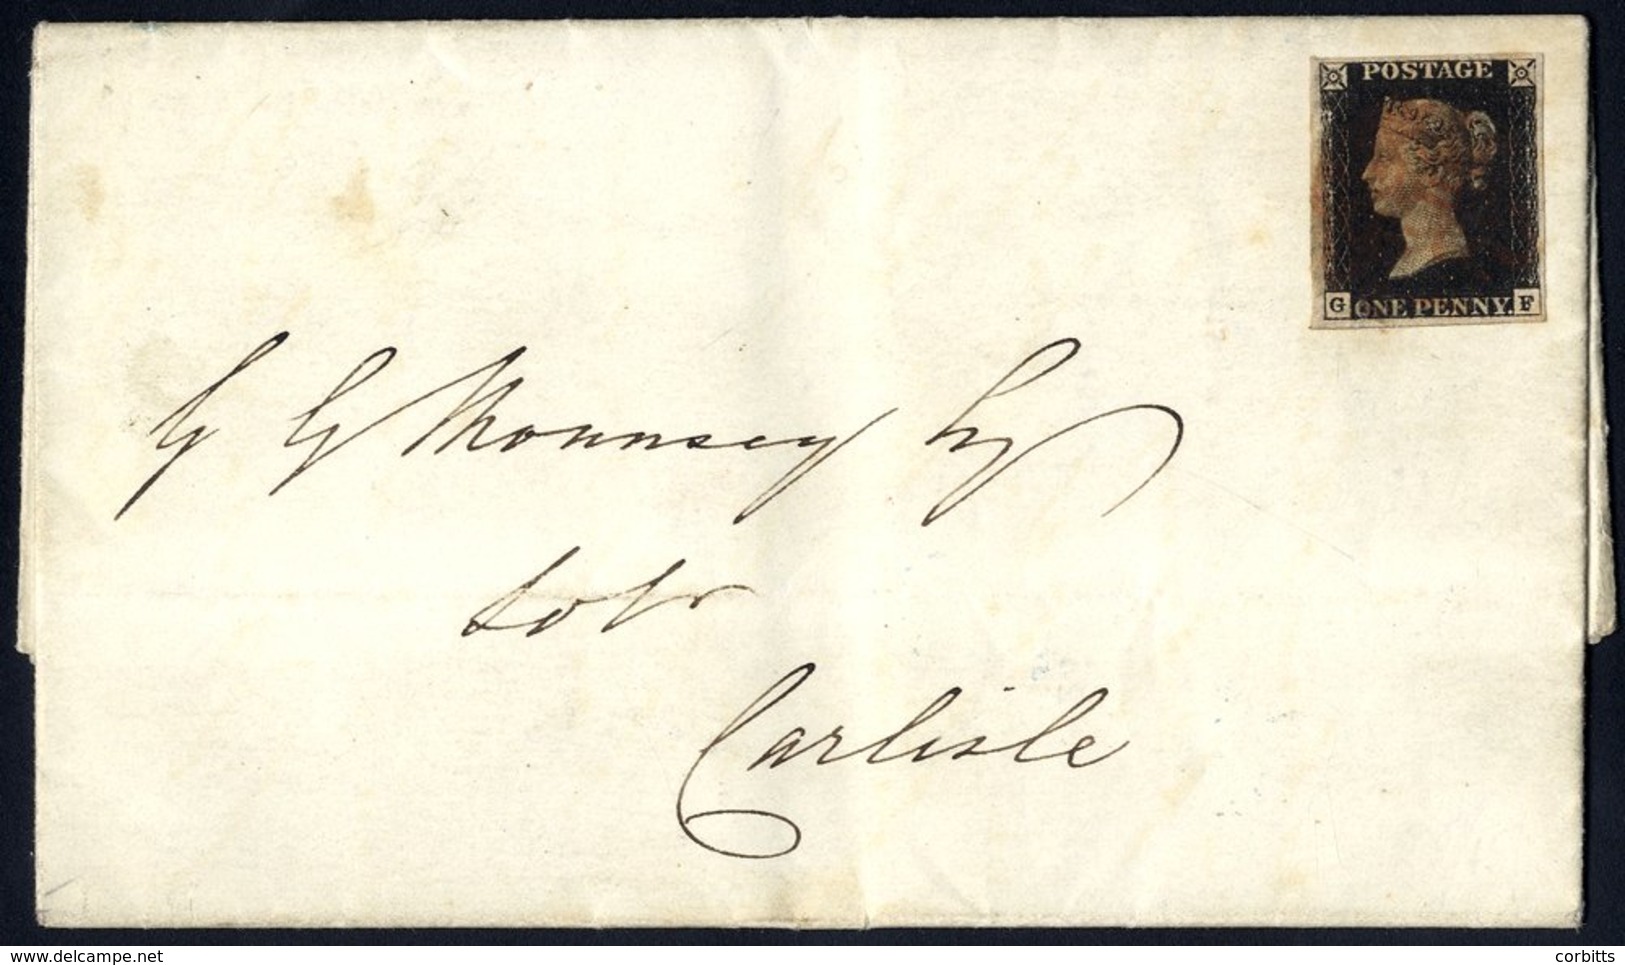 POSTAGE
G ONE PENNY. F
G G Mounsey Esq
Solr
Carlisle
delcampe.net
corbitts